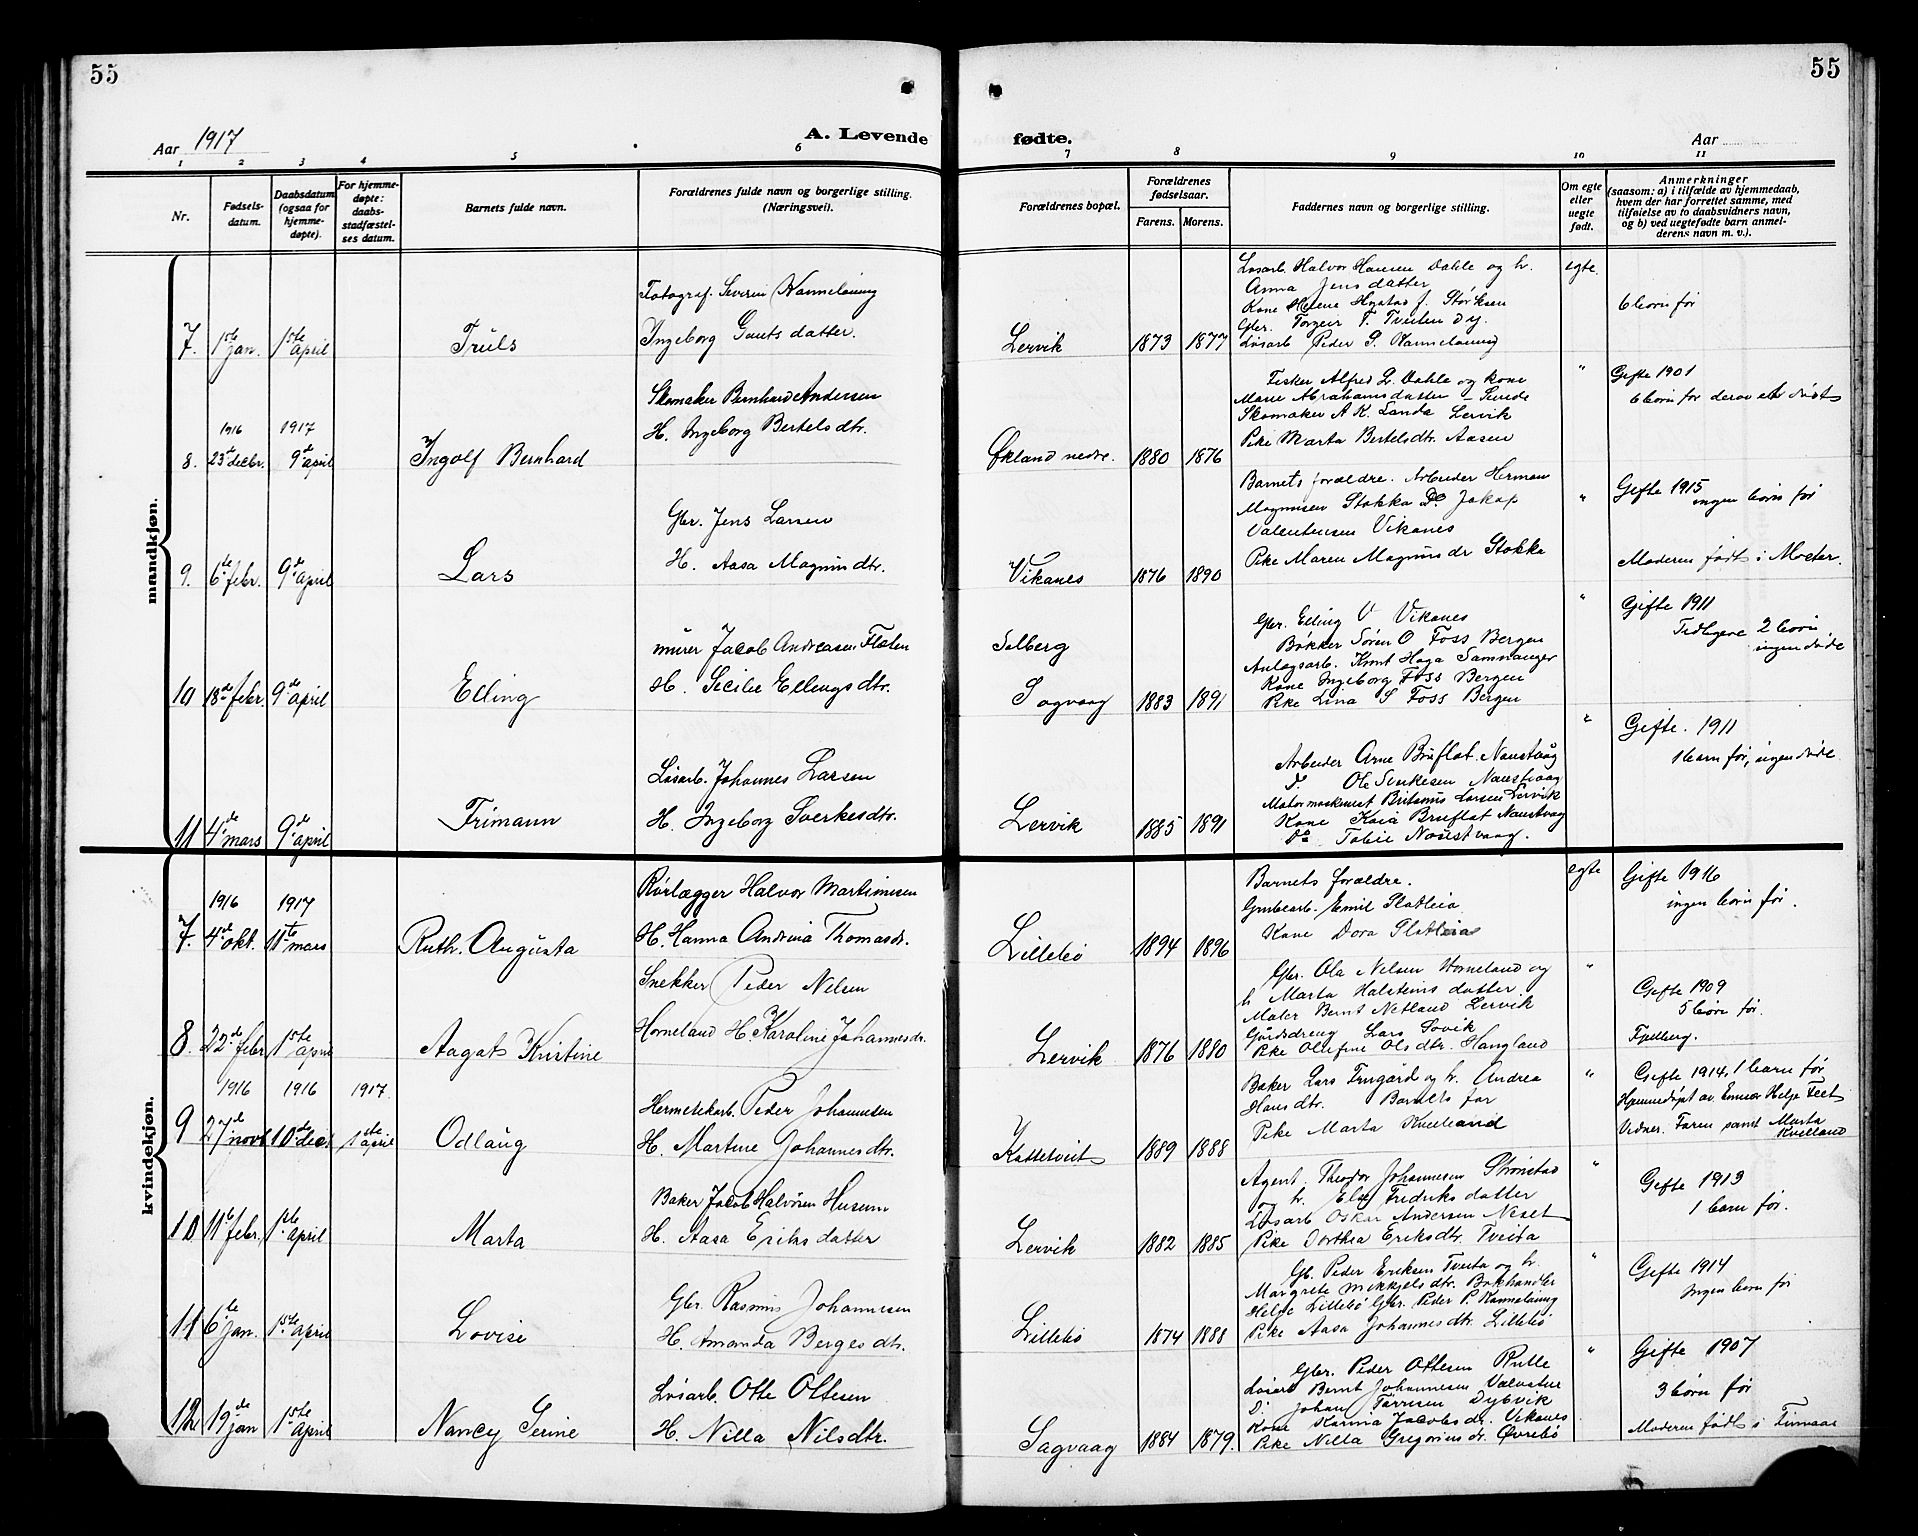 55
55
Aar 1917
A. Levende
fødte.
Aar
1 2 3 4 5 6 7 8 9 10 11
Nr.
Fødsels-
datum.
Daabsdatum
(ogsaa for
hjemme-
døpte).
For hjemme-
døpte:
daabs-
stadfæstel-
ses datum.
Barnets fulde navn.
Forældrenes fulde navn og borgerlige stilling.
(Næringsvei).
Forældrenes bopæl.
Forældrenes
fødselsaar.
Farens. Morens.
Faddernes navn og borgerlige stilling.
Om egte
eller
uegte
født.
Anmerkninger
(saasom: a) i tilfælde av hjemmedaab,
hvem der har forrettet samme, med
tilføielse av to daabsvidners navn,
og b) ved uegtefødte barn anmel-
derens navn m. v.).
mandkjøn.
7. 1ste jan. 1ste april
Truls
Fotograf. Severin Kanneløning
Ingeborg Gautsdatter.
Lervik 1873 1877
Løsarb. Halvor Hansen Dahle og h.
Anna Jensdatter
Kone Helene Hystad f. Størksen
Gbr. Torgeir T. Tveiten Dy.
Løsarb Peder S. Kanneløning
egte.
6 børn før
1916 1917
8. 23de decbr. 9de april
Ingolf Bernhard
Skomaker Bernhard Andersen
H. Ingeborg Bertelsdtr.
Økland nedre. 1880 1876
Fisker Alfred L. Dahle og kone
Marie Abrahamsdatter - Sunde
Skomaker A K. Sande Lervik
Pike Marta Bertelsdtr. Aasen
"
Gifte 1901
6 børn før derav et dødt
9. 6te febr. 9de april
Lars
Gbr. Jens Larsen
H. Aasa Magnundtr.
Vikanes 1876 1890
Barnets forældre. Arbeider Herman
Magnusen Stokka Do. Jakop
Valentinsen Vikanes
Pike Maren Magnundr Stokka
"
Gifte 1915
ingen børn før
Moderen født i Moster.
10 18de febr. 9de april
Elling
murer Jacob Andreasen Flaten
H. Secilie Ellingsdtr.
Solberg
Sagvaag 1883 1891
Gbr. Elling V Vikanes
Bøkker Søren O Foss Bergen
Anlagsarb. Knut Haga Samnanger
Kone Ingeborg Foss Bergen
Pike Lina S Foss Bergen
"
Gifte 1911
Tidligere 2 børn
ingen døde
11 4de mars 9de april
Frimann
Løsarb. Johannes Larsen
H. Ingeborg Sverkesdtr.
Lervik 1885 1891
Arbeider Arne Bruflat Naustvaag
D. Ole Naustvaag
Motormaskinist Larsen Lervik
Kone Kaia Bruflat Naustvag
Do Tobie Naustvaag.
"
Gifte. 1911
1 barn før, ingen døde.
kvindekjøn.
1916 1917
7. 4de okt. 11te mars
Ruth. Augusta
Rørlægger Halvor Martinusen
H. Hanna Andrina Thomasdr.
Lillebø 1894 1896
Barnets forældre.
Grubearb. Emil Slatleia
Kone Dora Slatleia
egte
Gifte 1916
ingen børn før.
8. 22de febr 1ste april
Aagot Kristine
Snekker Peder Nelsen
Horneland H. Karoline Johannesdr.
Lervik 1876 1880
Gbr. Ola Nelsen Horneland og
h Marta Halsteinsdatter
Maler Bernt Netland Lervik
Gårdsdreng Lars Sovik
Pike Olufine Olsdtr. Haugland
"
Gifte 1909
5 børn før.
Fjelberg.
1916 1916 1917
9 27de novb 10de dec. 1ste april
Odlaug
Hermetikarb. Peder Johannesen
H. Martine Johannesdtr.
Kattetveit 1889 1888
Baker Lars Trugård og h. Andrea
Hansdtr. Barnets far
Pike Marta Kveiland
"
Gifte 1914, 1 barn før
Hjemmedøpt av Helje Feet
Vidner. Faren samt Marta
Kveiland
10 11te febr, 1ste april
Marta
Baker Jacob Halvorsen Husum
H. Aasa Eriksdatter
Lervik 1882 1885
Agent. Theodor Johannesen Strønstad
og h. Else Fredriksdatter
Løsarb Oskar Andersen Neset
Pike Dorthea Eriksdtr. Tveita
"
Gifte 1913
1 barn før.
11 6te jan. 1ste april
Lovise
Gbr. Rasmus Johannesen
H. Amanda Bergesdtr.
Lillebø 1874 1888
Gb. Peder Eriksen Tveita og h.
Margrete Mikkjelsdtr. Bokhandler
Helje Lillebø Gbr. Peder P. Kanneløning
Pike Aasa Johannesdtr. Lillebø
"
Gifte 1914
Ingen børn før
12 19de jan 1ste april
Nancy Serine
Løsarb. Otte Ottesen
H. Nilla Nilsdtr.
Sagvaag 1884 1879.
Gbr. Peder Ottesen Rulle
Løsarb Bernt Johannesen Valvatne
D. Johan Tørresen Dybvik
Kone Karina Jacobsdr. Vikanes
Pike Nilla Gregoriusdr. Øvrebø
"
Gifte 1907
3 børn før
Moderen født i Finnaas